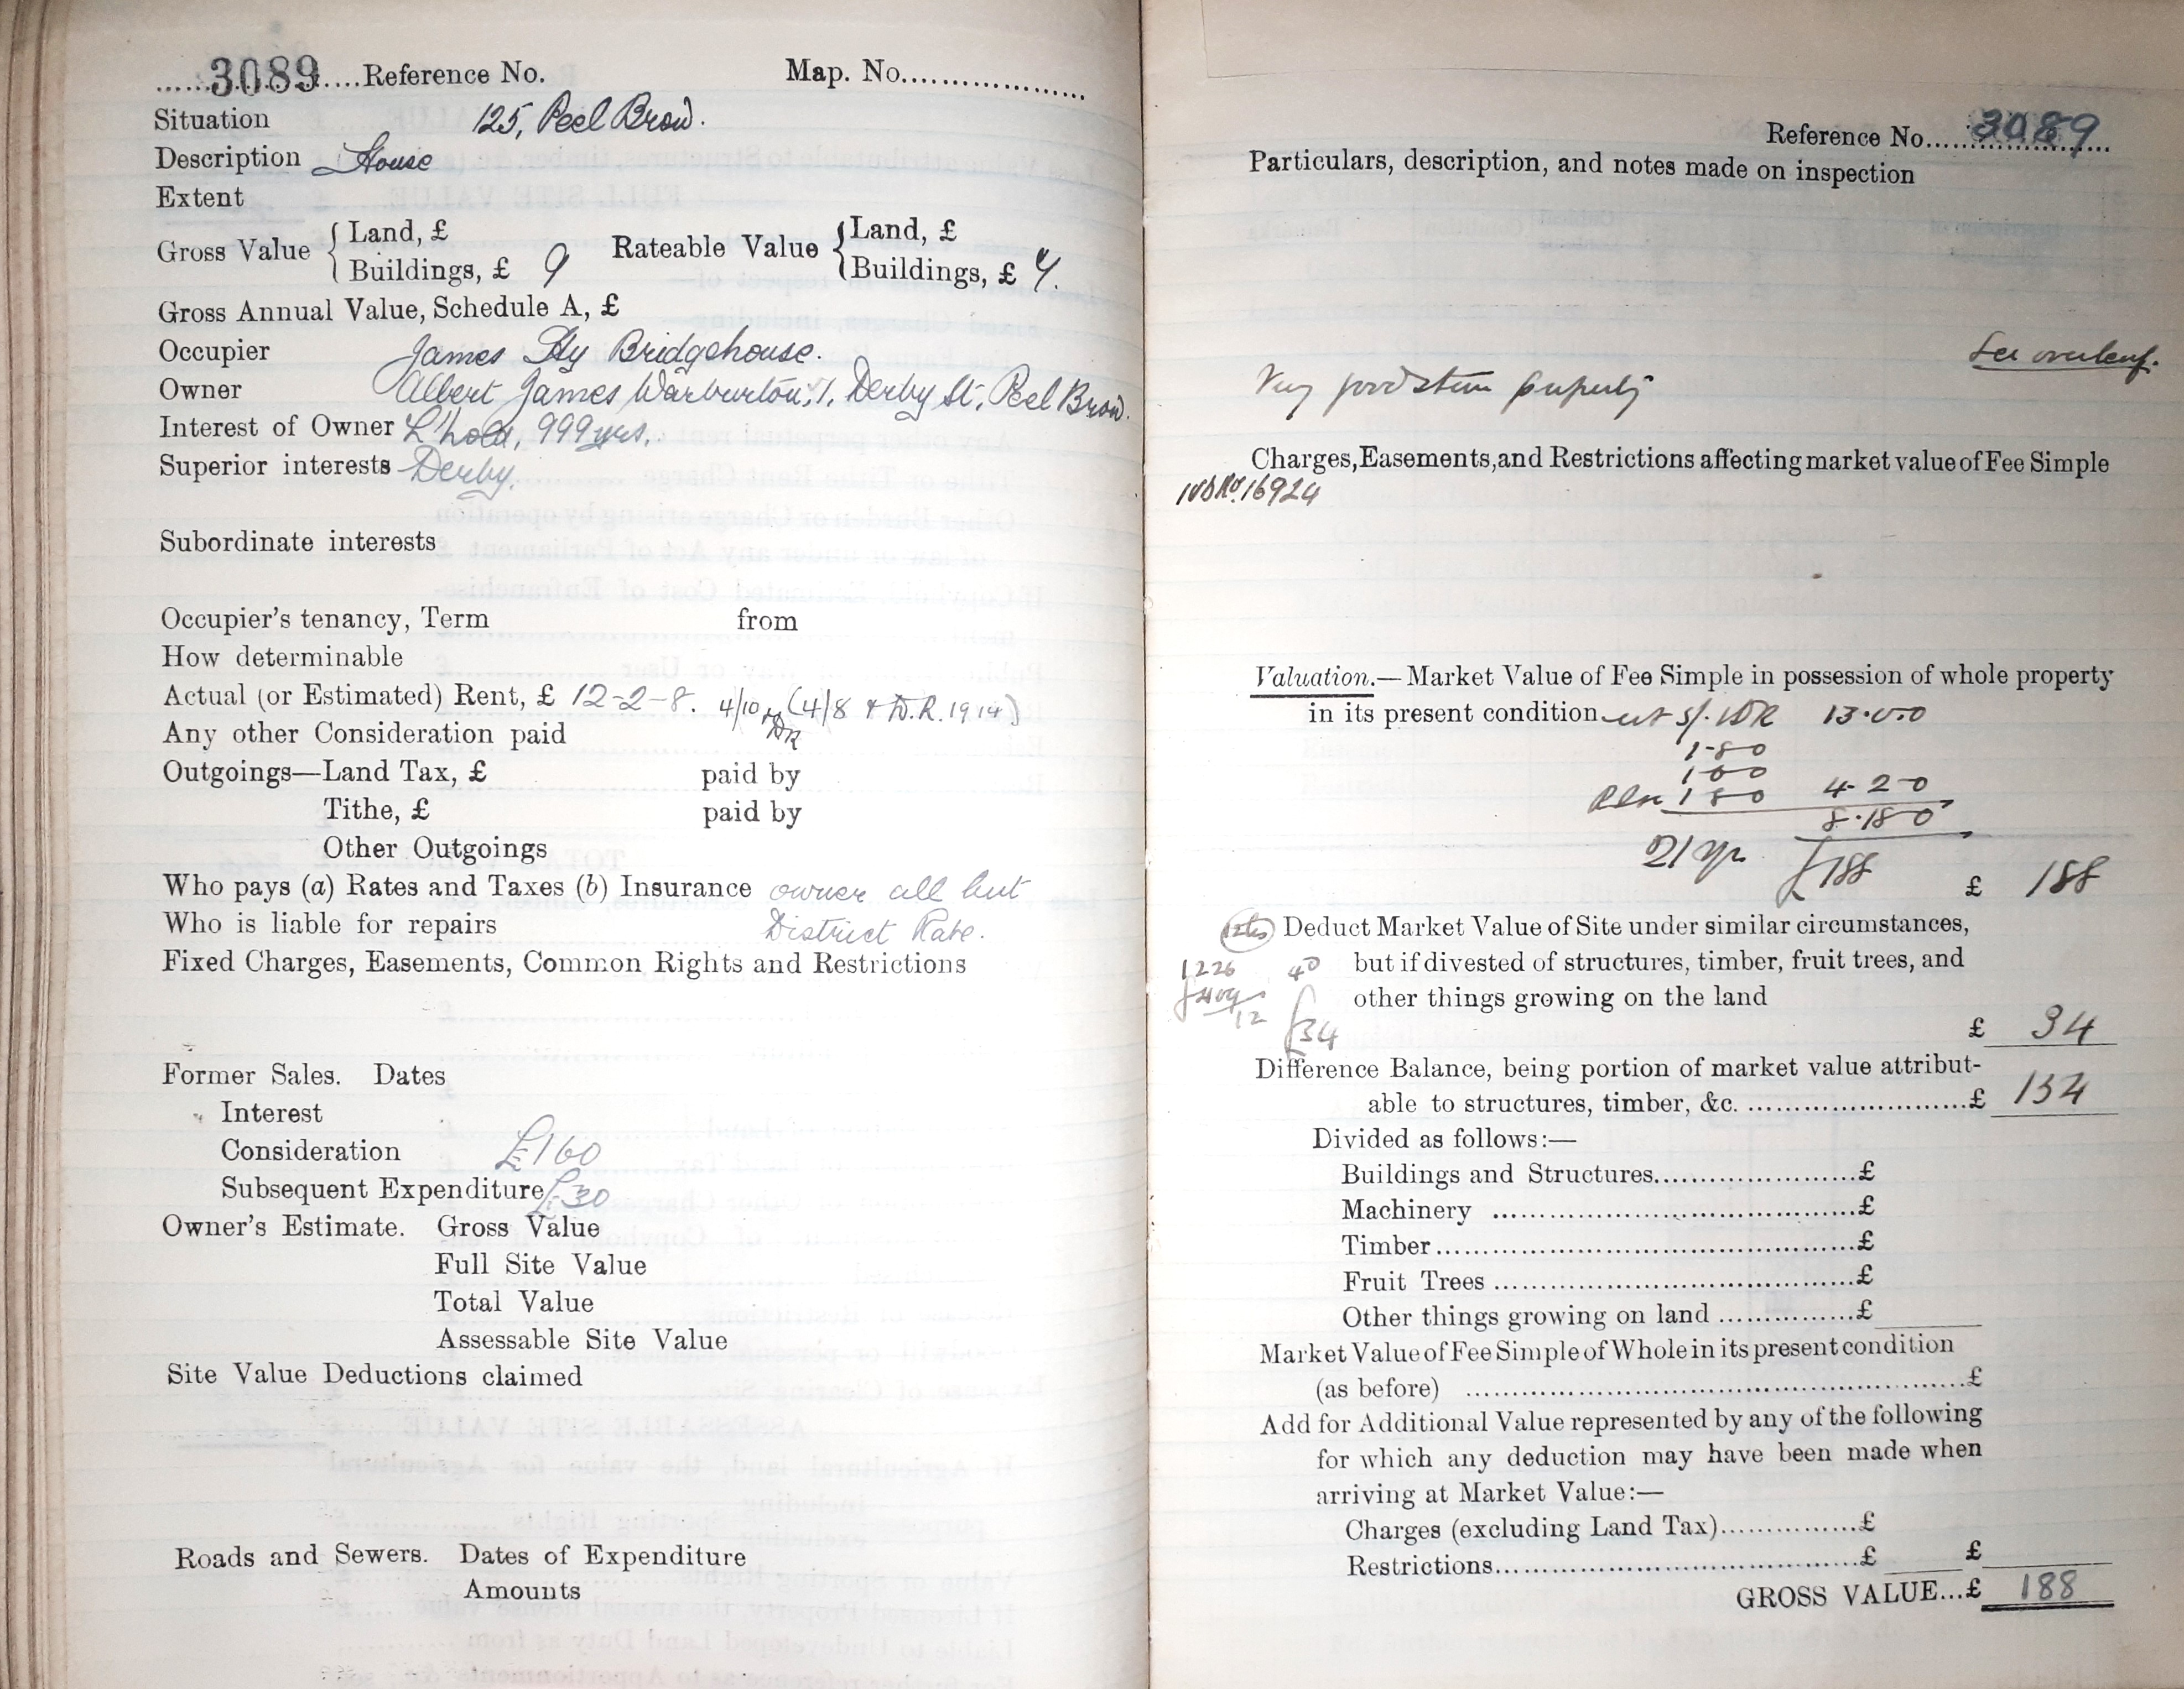 3089 Reference No. Map. No.
Situation 125, Peel Brow.
Description House
Extent
Gross Value { Land, £
Buildings, £ 9
Rateable Value { Land, £
Buildings, £
Gross Annual Value, Schedule A, £
Occupier James Hy Bridgehouse.
Owner Albert James Warburton, 1, Derby St, Peel Brow.
Interest of Owner L'hold, 999 yrs.
Superior interests Derby.
Subordinate interests
Occupier's tenancy, Term from
How determinable
Actual (or Estimated) Rent, £ 12-2-8. 4/10 (4/8 + D.R. 1914)
DR
Any other Consideration paid
Outgoings—Land Tax, £ paid by
Tithe, £ paid by
Other Outgoings
Who pays (a) Rates and Taxes (b) Insurance owner all but
Who is liable for repairs District Rate.
Fixed Charges, Easements, Common Rights and Restrictions
Former Sales. Dates
Interest
Consideration £160
Subsequent Expenditure £30
Owner's Estimate. Gross Value
Full Site Value
Total Value
Assessable Site Value
Site Value Deductions claimed
Roads and Sewers. Dates of Expenditure
Amounts
Reference No. 3089
Particulars, description, and notes made on inspection
See overleaf.
Very good stone property
Charges, Easements, and Restrictions affecting market value of Fee Simple
16924
Valuation.—Market Value of Fee Simple in possession of whole property
in its present condition 5/- DR 13.0.0
1-8-0
1-6-0
1 8 0 4-2-0
8.18.0
21 yp £188 £ 188
Deduct Market Value of Site under similar circumstances,
1226 40 but if divested of structures, timber, fruit trees, and
12 £34 other things growing on the land
£ 34
Difference Balance, being portion of market value attribut-
able to structures, timber, &c. £ 154
Divided as follows:—
Buildings and Structures £
Machinery £
Timber £
Fruit Trees £
Other things growing on land £
Market Value of Fee Simple of Whole in its present condition
(as before) £
Add for Additional Value represented by any of the following
for which any deduction may have been made when
arriving at Market Value:—
Charges (excluding Land Tax) £
Restrictions £ £
GROSS VALUE...£ 188